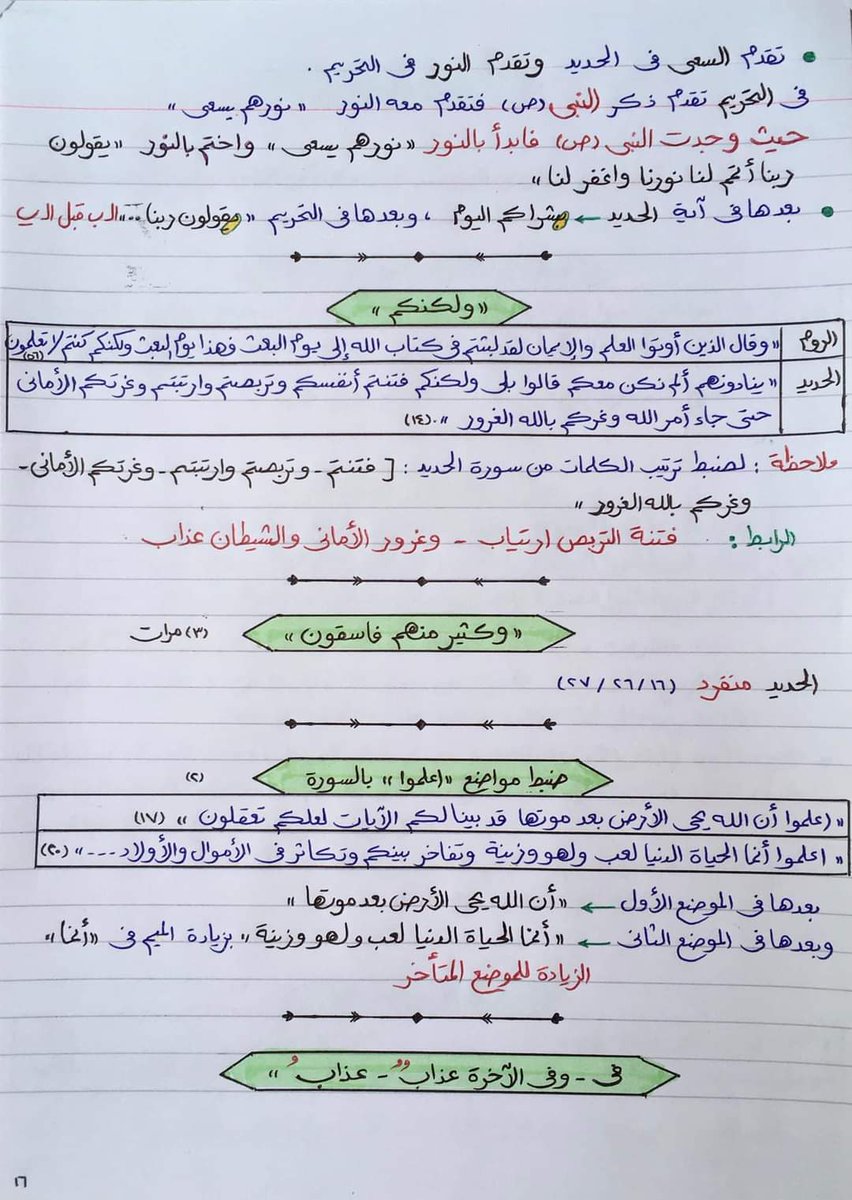 • تقدم السعى فى الحديد وتقدم النور فى التحريم .
فى التحريم تقدم ذكر (النبى (ص) فتقدم معه النور " نورهم يسعى "
حيث وجدت النبى (ص) فابدأ بالنور " نورهم يسعى " واختم بالنور " يقولون
ربنا أتمم لنا نورنا واغفر لنا "
• بعدها فى آية الحديد ← بشراكم اليوم ، وبعدها فى التحريم " يقولون ربنا .. " الـ ب قبل الـ ى
" ولكنكم "
الروم " وقال الذين أوتوا العلم والإيمان لقد لبثتم فى كتاب الله إلى يوم البعث فهذا يوم البعث ولكنكم كنتم لا تعلمون (٥٦)
الحديد " ينادونهم ألم نكن معكم قالوا بلى ولكنكم فتنتم أنفسكم وتربصتم وارتبتم وغرتكم الأمانى
حتى جاء أمر الله وغركم بالله الغرور " . (١٤)
ملاحظة : لضبط ترتيب الكلمات من سورة الحديد : [ فتنتم - وتربصتم وارتبتم - وغرتكم الأمانى -
وغركم بالله الغرور "
الرابط : فتنة التربص ارتياب - وغرور الأمانى والشيطان عذاب
" وكثير منهم فاسقون " (٣) مرات
الحديد منفرد (١٦ / ٢٦ / ٢٧)
ضبط مواضع " اعلموا " بالسورة (٢)
" اعلموا أن الله يحى الأرض بعد موتها قد بينا لكم الآيات لعلكم تعقلون " (١٧)
" اعلموا أنما الحياة الدنيا لعب ولهو وزينة وتفاخر بينكم وتكاثر فى الأموال والأولاد ... " (٢٠)
بعدها فى الموضع الأول ← " أن الله يحى الأرض بعد موتها "
وبعدها فى الموضع الثانى ← " أنما الحياة الدنيا لعب ولهو وزينة " بزيادة الميم فى " أنما "
الزيادة للموضع المتأخر
فى - وفى الآخرة عذابٌ - عذابُ "
١٦